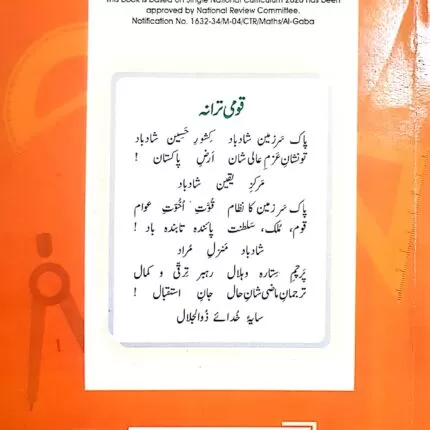 This book is based on Single National Curriculum 2020 has been
approved by National Review Committee.
Notification No. 1632-34/M-04/CTR/Maths/Al-Gaba
قومی ترانہ
پاک سَرزمین شادباد کِشورِ حَسین شادباد
تو نشانِ عَزمِ عالی شان ارضِ پاکستان !
مَرکزِ یقین شادباد
پاک سَرزمین کا نظام قُوّتِ اُخُوّتِ عوام
قوم، مُلک، سَلطنت پائندہ تابندہ باد !
شادباد مَنزلِ مُراد
پَرچمِ ستارہ و ہلال رہبرِ ترقّی و کمال
ترجمانِ ماضی شانِ حال جانِ استقبال !
سایۂ خُدائے ذُوالجلال